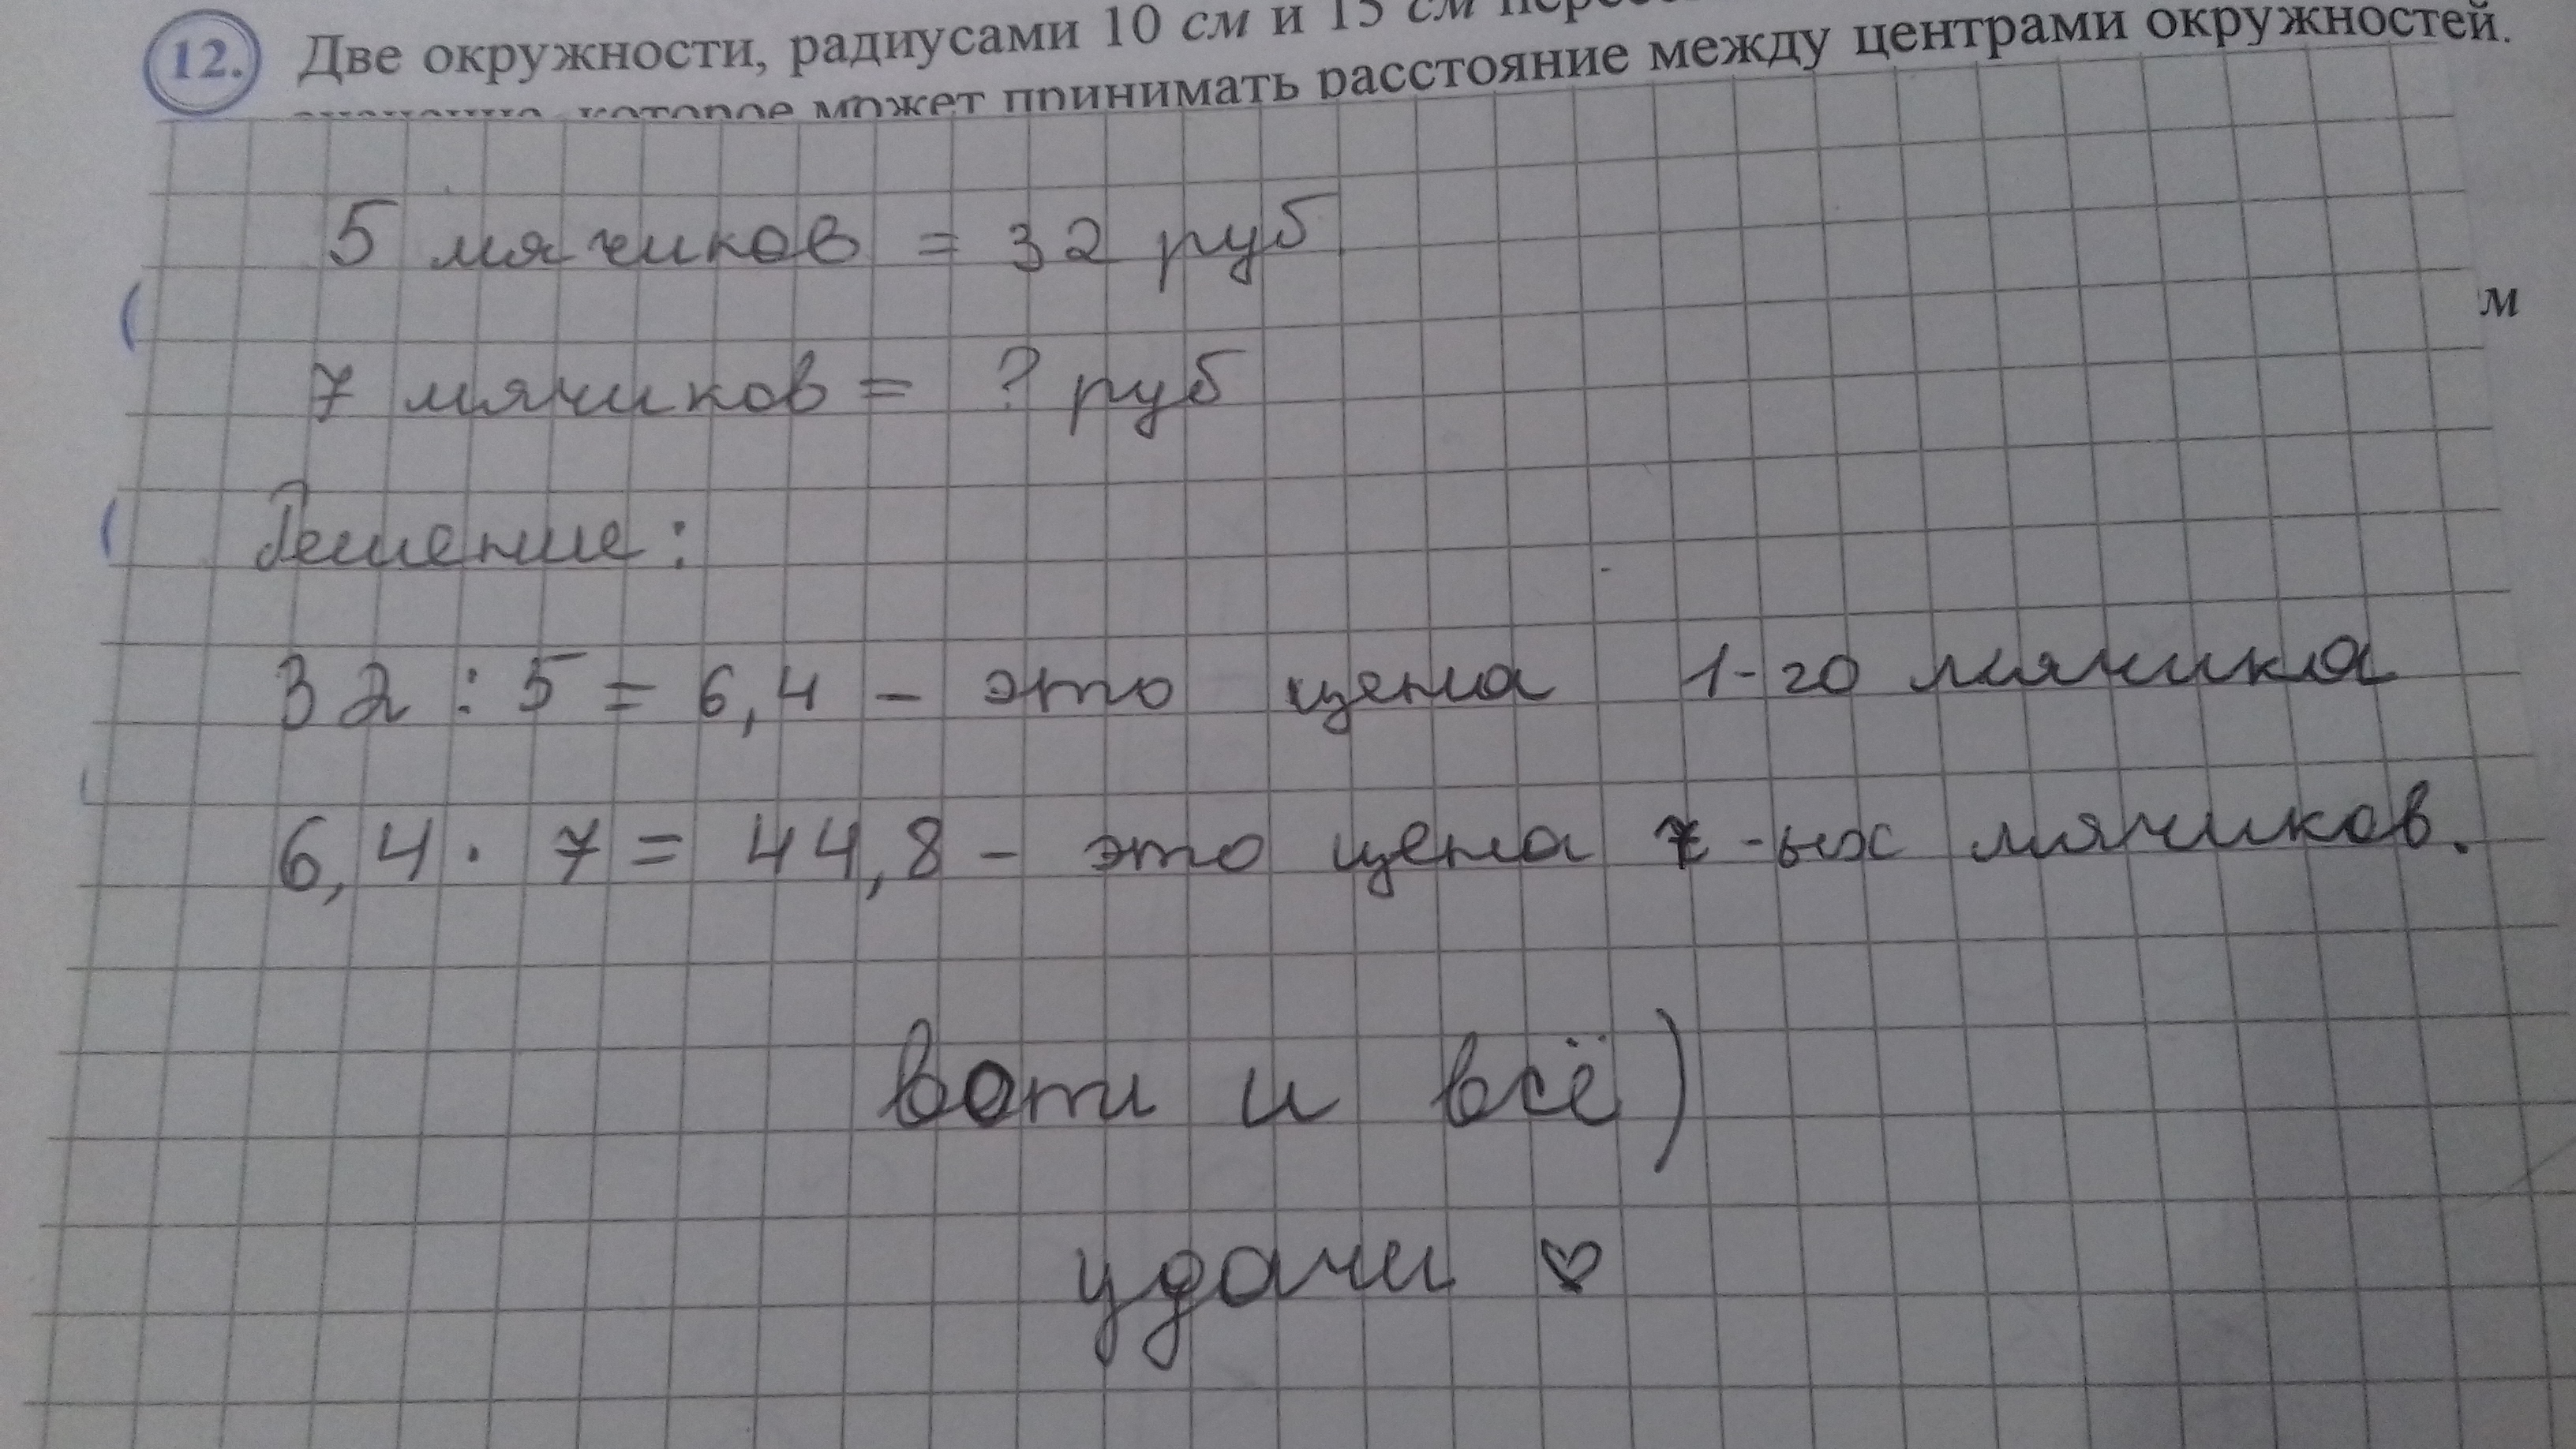 12. Две окружности, радиусами 10 см и 15 см
которое может принимать расстояние между центрами окружностей.
5 мячиков = 32 руб
м
7 мячиков = ? руб
Решение:
32 : 5 = 6,4 - это цена 1-го мячика
6,4 · 7 = 44,8 - это цена 7-ых мячиков.
вот и всё)
удачи ♡